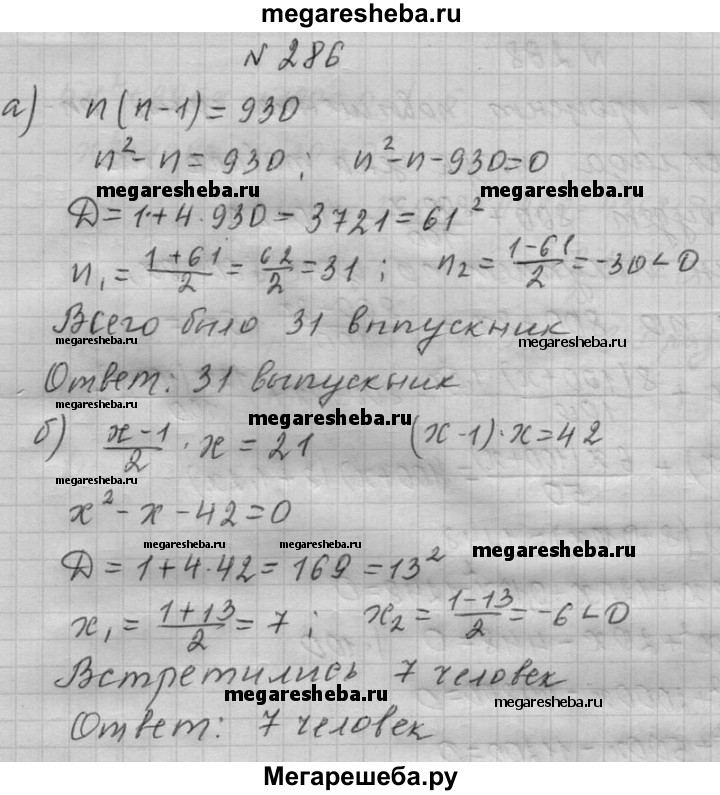 megaresheba.ru
N 286
а) n(n-1)=930
n²-n=930; n²-n-930=0
megaresheba.ru megaresheba.ru
Д=1+4·930=3721=61²
n₁=(1+61)/2=62/2=31; n₂=(1-61)/2=-30<0
Всего было 31 вппускник
megaresheba.ru megaresheba.ru
Ответ: 31 выпускник
megaresheba.ru megaresheba.ru
б) (x-1)/2·x=21 (x-1)·x=42
megaresheba.ru
x²-x-42=0
megaresheba.ru megaresheba.ru megaresheba.ru
Д=1+4·42=169=13²
x₁=(1+13)/2=7; x₂=(1-13)/2=-6<0
Встретились 7 человек
megaresheba.ru megaresheba.ru
Ответ: 7 человек
Мегарешеба.ру